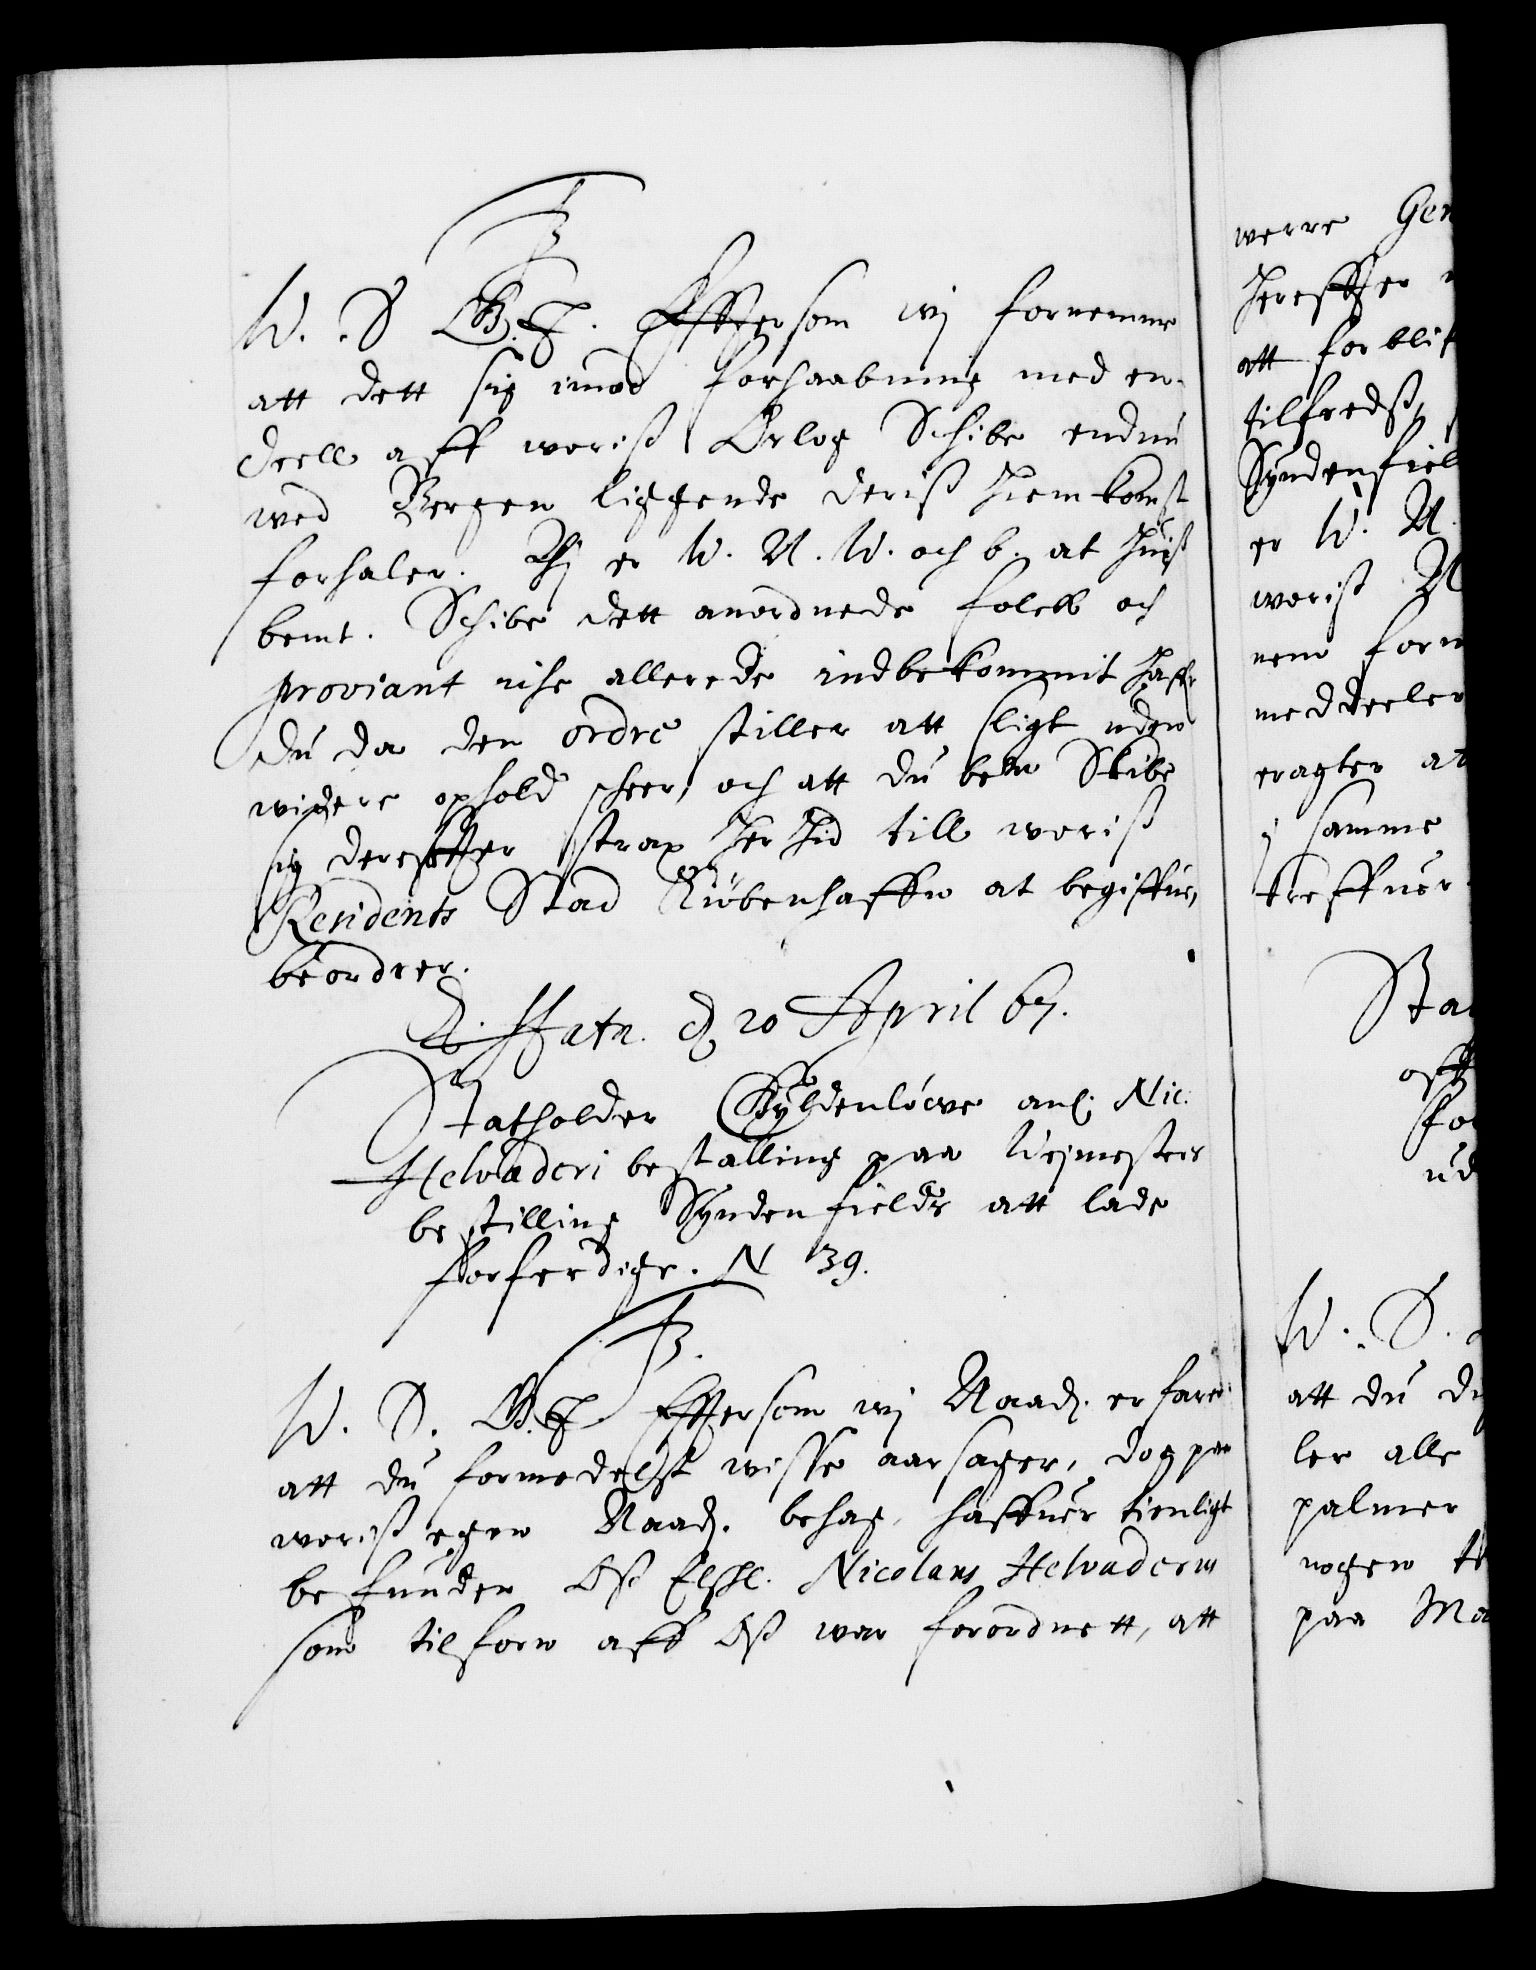 F3
W. S G. T. Effter som wj fornemme
att dett sig imod forhaabning med en-
deell aff woriß Orlog Schibe endnu
wed Bergen liggende deriß hiemkomst
forhaler. Thj er W. N. W. och b. at huiß
bemt. Schibe dett anordnede folck och
proviant iche allerede indbekommit haffr
du da den ordre stiller att sligt uden
widere ophold scheer, och att du bete Skibe
sig dereffter strax her hid till woriß
Residents Stad Kiøbenhaffn at begiffue,
beordrer.
Ut Hafn. d 20 April 67.
Statholder Gyldenløwe anl. Nic.
Helvaderi bestalling paa Wejmesters
bestilling Syndenfields att lade
forferdige. N 39.
F3.
W. S. G. T. Efftersom wj Naadl. erfarer
att du formedelst wisse aarsager, dog paa
woriß egen Naadl. behag, haffuer tienligt
befunden Oß Elschl. Nicolaus Helvaderus
som tilforn aff Oß war forordnett, att
werre Gen
hereffter
att forblif
tilfredß,
Syndenfiel
er W. N.
woriß N
nem form
meddeeler
eragter at
j samme
treffuer
Sta
off
for
ud
W. S.
att du
ler alle
palmer
nogen
paa Ma